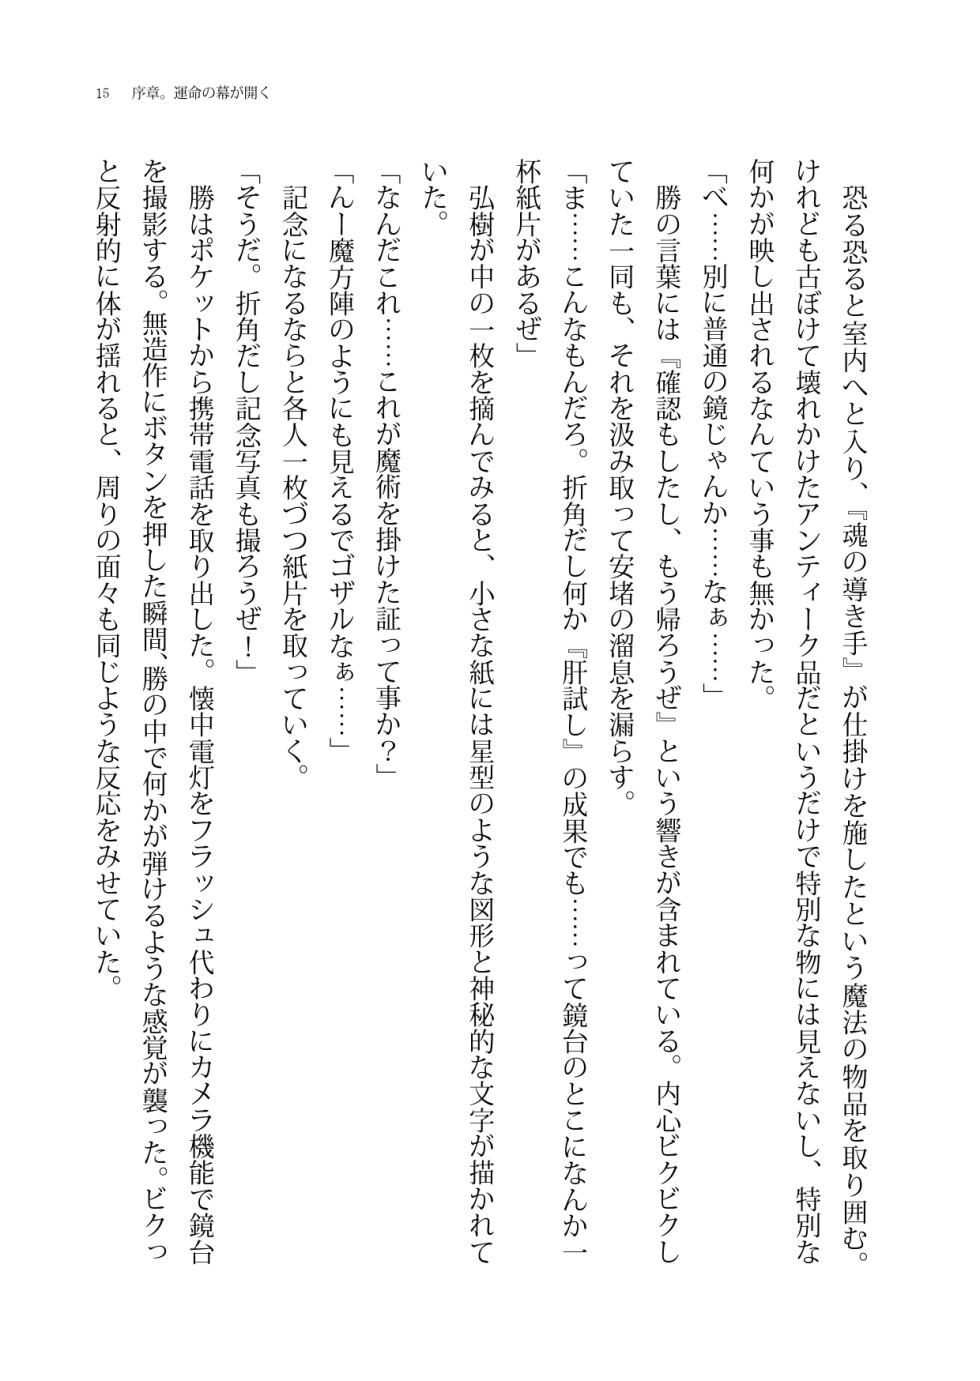 15 序章。運命の幕が開く
　恐る恐ると室内へと入り、『魂の導き手』が仕掛けを施したという魔法の物品を取り囲む。
けれども古ぼけて壊れかけたアンティーク品だというだけで特別な物には見えないし、特別な
何かが映し出されるなんていう事も無かった。
「べ……別に普通の鏡じゃんか……なぁ……」
　勝の言葉には『確認もしたし、もう帰ろうぜ』という響きが含まれている。内心ビクビクし
ていた一同も、それを汲み取って安堵の溜息を漏らす。
「ま……こんなもんだろ。折角だし何か『肝試し』の成果でも……って鏡台のとこになんか一
杯紙片があるぜ」
　弘樹が中の一枚を摘んでみると、小さな紙には星型のような図形と神秘的な文字が描かれて
いた。
「なんだこれ……これが魔術を掛けた証って事か？」
「んー魔方陣のようにも見えるでゴザルなぁ……」
　記念になるならと各人一枚づつ紙片を取っていく。
「そうだ。折角だし記念写真も撮ろうぜ！」
　勝はポケットから携帯電話を取り出した。懐中電灯をフラッシュ代わりにカメラ機能で鏡台
を撮影する。無造作にボタンを押した瞬間、勝の中で何かが弾けるような感覚が襲った。ビクっ
と反射的に体が揺れると、周りの面々も同じような反応をみせていた。